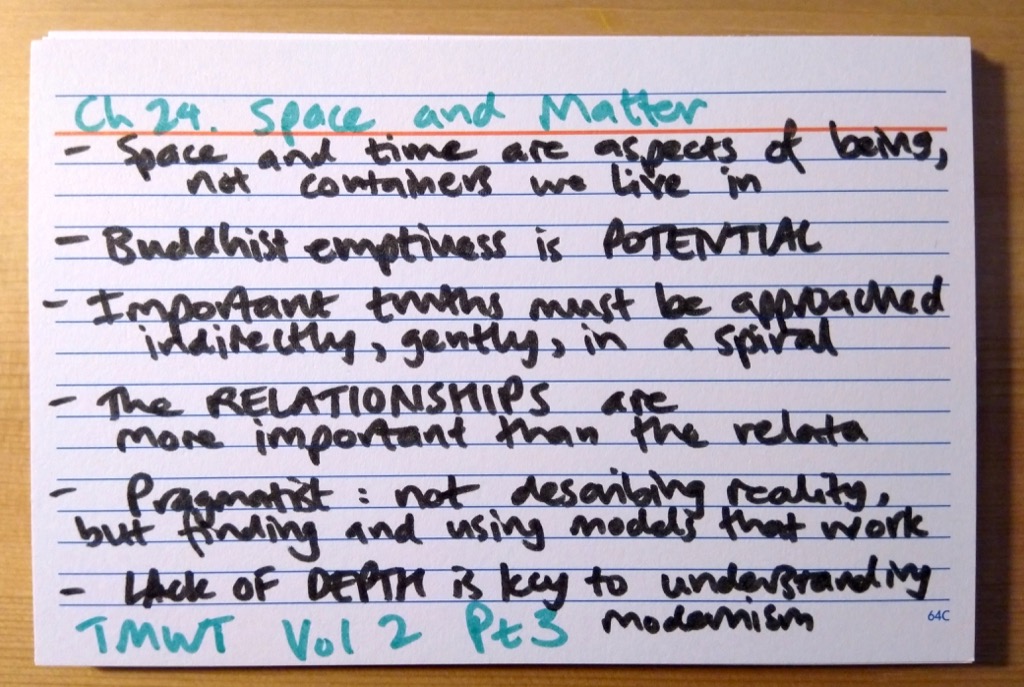 Ch 24. Space and Matter
- Space and time are aspects of being,
not containers we live in
- Buddhist emptiness is POTENTIAL
- Important truths must be approached
indirectly, gently, in a spiral
- The RELATIONSHIPS are
more important than the relata
- Pragmatist: not describing reality,
but finding and using models that work
- LACK OF DEPTH is key to understanding
modernism
TMWT Vol 2 Pt 3
64C